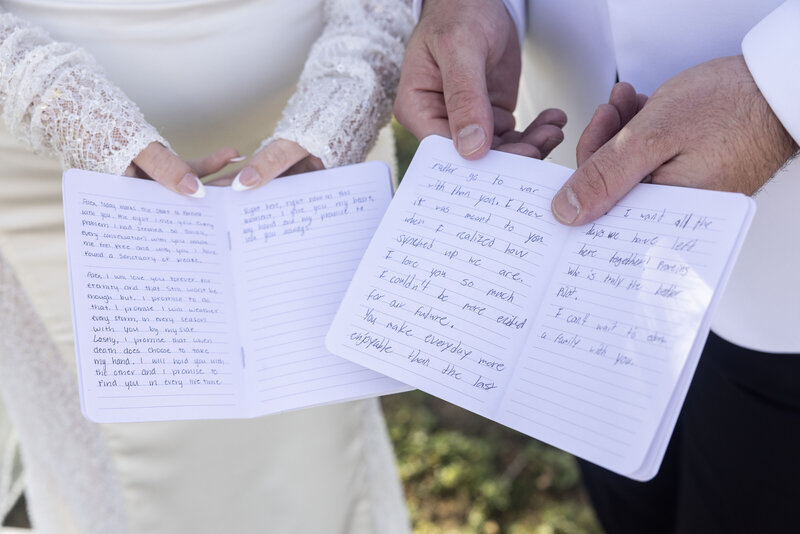 today marks the start of forever
with you. The night I met you every
problem I had seemed so small,
every conversation with you made
me feel free and with you I have
found a sanctuary of peace.
I will love you forever, for
eternity and that still won't be
enough but, I promise to do
that. I promise I will weather
every storm, in every season
with you by my side.
Lastly, I promise that when
death does choose to take
my hand. I will hold you with
the other and I promise to
find you in every life time
Right here, right now in this
moment, I give you my heart,
my hand and my promise to
love you always.
matter go to war
with than you. I know
it was meant to you
when I realized how
synched up we are.
I love you so much
I couldn't be more excited
for our future.
You make everyday more
enjoyable than the last
I want all the
days we have left
here together!
who is truly the better
pilot.
I can't wait to
a family with you.